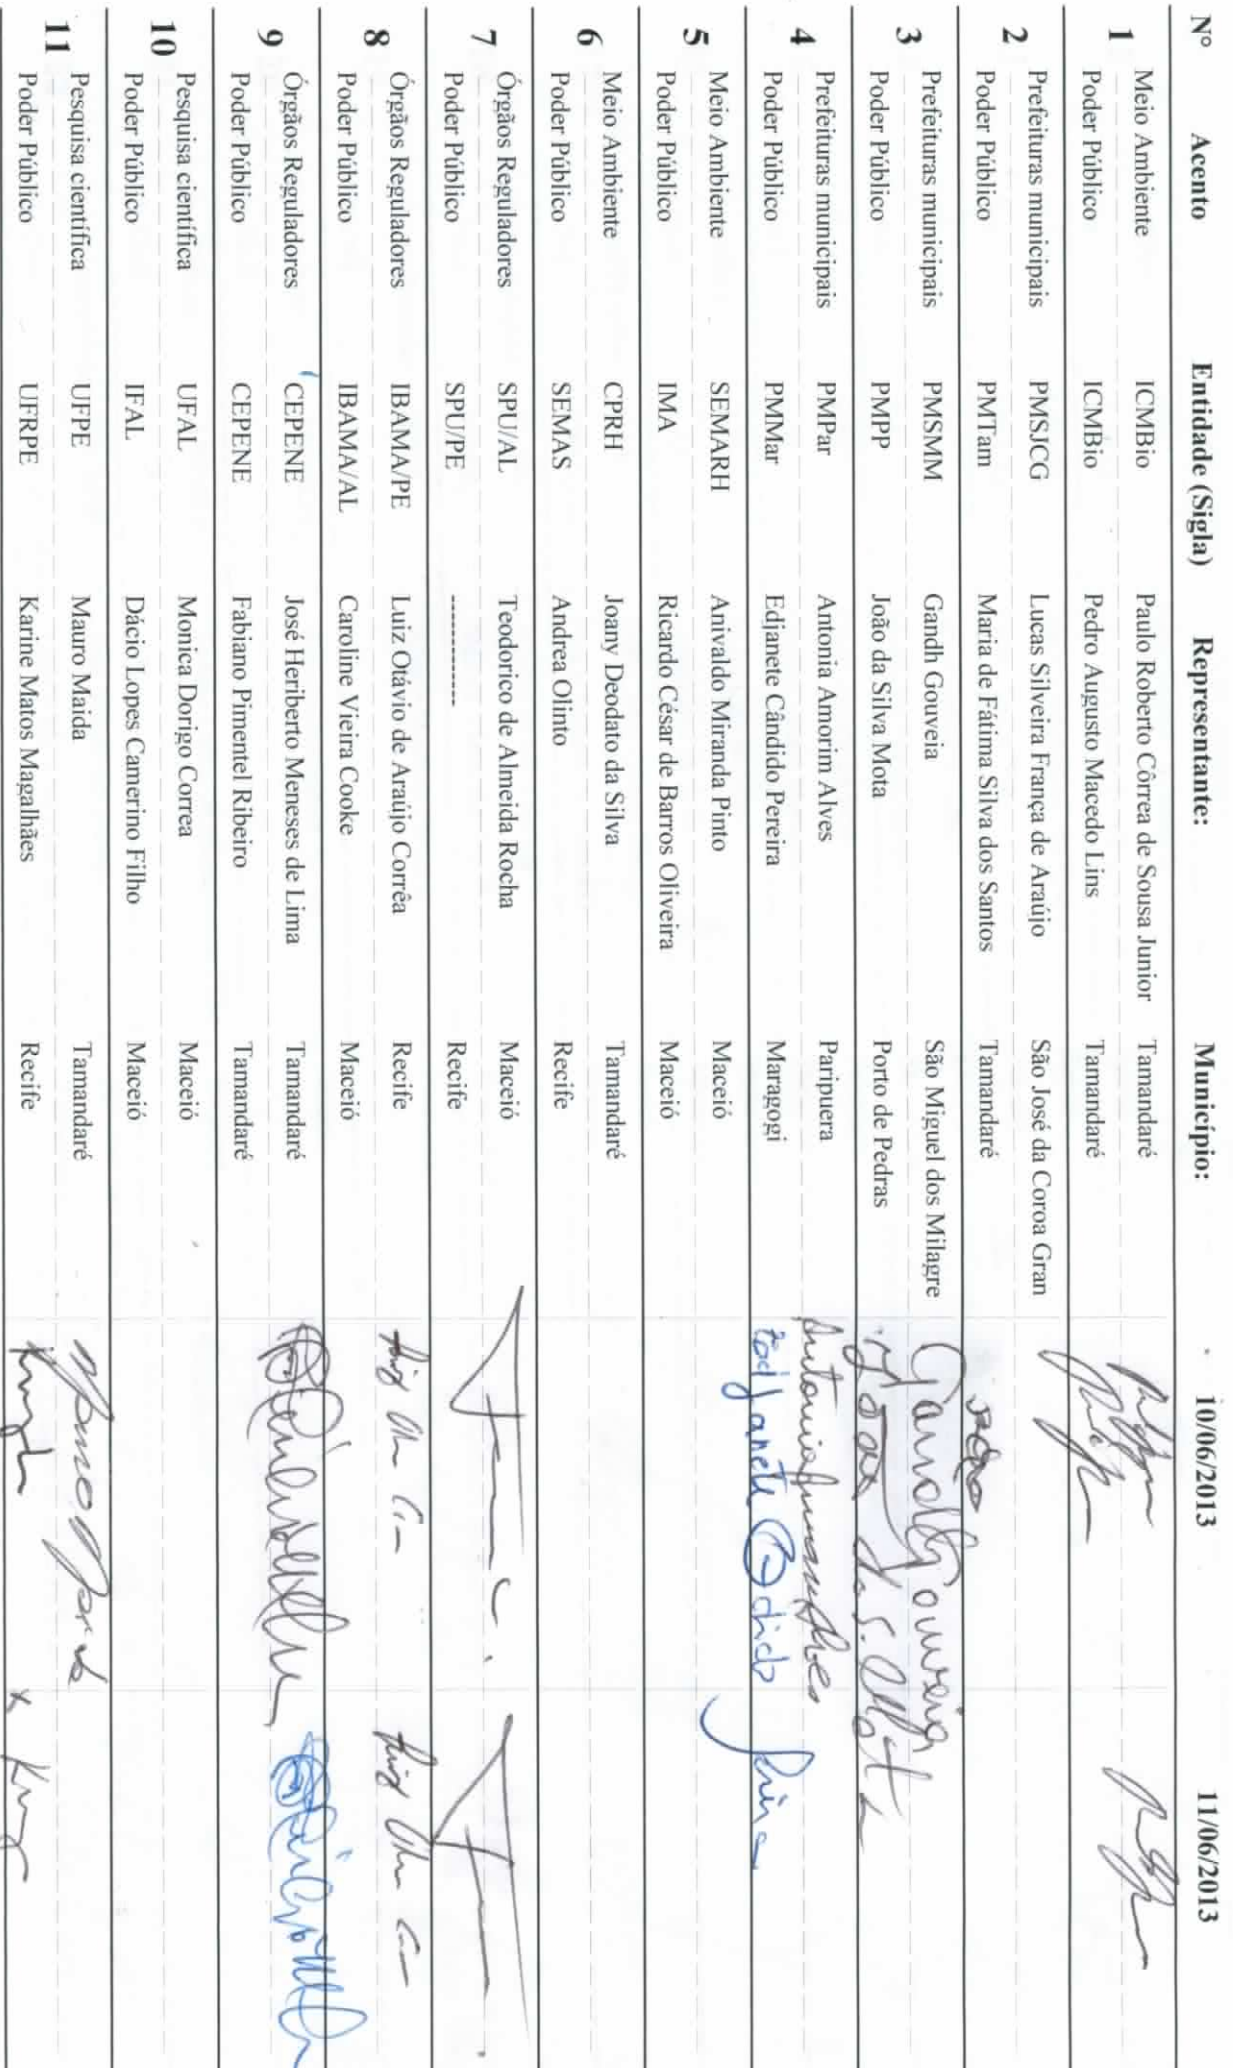 Nº Acento Entidade (Sigla) Representante: Município: 10/06/2013 11/06/2013
1 Meio Ambiente ICMBio Paulo Roberto Côrrea de Sousa Junior Tamandaré
Poder Público ICMBio Pedro Augusto Macedo Lins Tamandaré
2 Prefeituras municipais PMSJCG Lucas Silveira França de Araújo São José da Coroa Gran
Poder Público PMTam Maria de Fátima Silva dos Santos Tamandaré
3 Prefeituras municipais PMSMM Gandh Gouveia São Miguel dos Milagre Gandhy Gouveia
Poder Público PMPP João da Silva Mota Porto de Pedras João da S. Mota
4 Prefeituras municipais PMPar Antonia Amorim Alves Paripuera
Poder Público PMMar Edjanete Cândido Pereira Maragogi
5 Meio Ambiente SEMARH Anivaldo Miranda Pinto Maceió
Poder Público IMA Ricardo César de Barros Oliveira Maceió
6 Meio Ambiente CPRH Joany Deodato da Silva Tamandaré
Poder Público SEMAS Andrea Olinto Recife
7 Órgãos Reguladores SPU/AL Teodorico de Almeida Rocha Maceió
Poder Público SPU/PE ------------ Recife
8 Órgãos Reguladores IBAMA/PE Luiz Otávio de Araújo Corrêa Recife
Poder Público IBAMA/AL Caroline Vieira Cooke Maceió
9 Órgãos Reguladores CEPENE José Heriberto Meneses de Lima Tamandaré
Poder Público CEPENE Fabiano Pimentel Ribeiro Tamandaré
10 Pesquisa científica UFAL Monica Dorigo Correa Maceió
Poder Público IFAL Dácio Lopes Camerino Filho Maceió
11 Pesquisa científica UFPE Mauro Maida Tamandaré
Poder Público UFRPE Karine Matos Magalhães Recife x